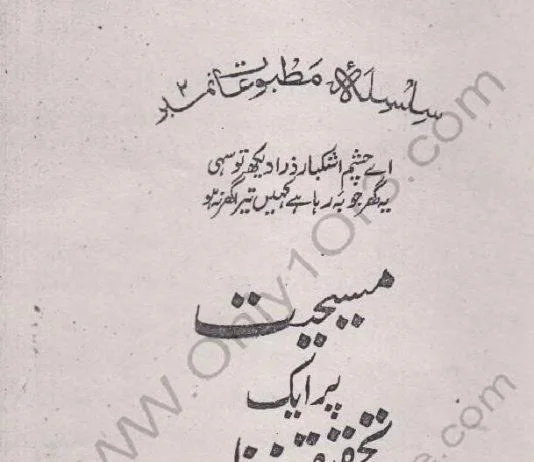 سلسلۂ مطبوعات نمبر ۳
اے چشمِ اشکبار ذرا دیکھ تو سہی
یہ گھر جو بہ رہا ہے کہیں تیرا گھر نہ ہو
مسیحیت
پر ایک
www.Only1Or3.com